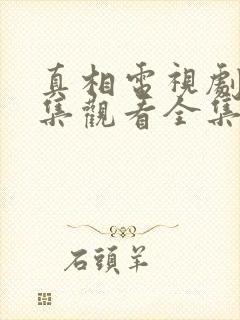 真相電視劇
集觀看全集
石頭羊